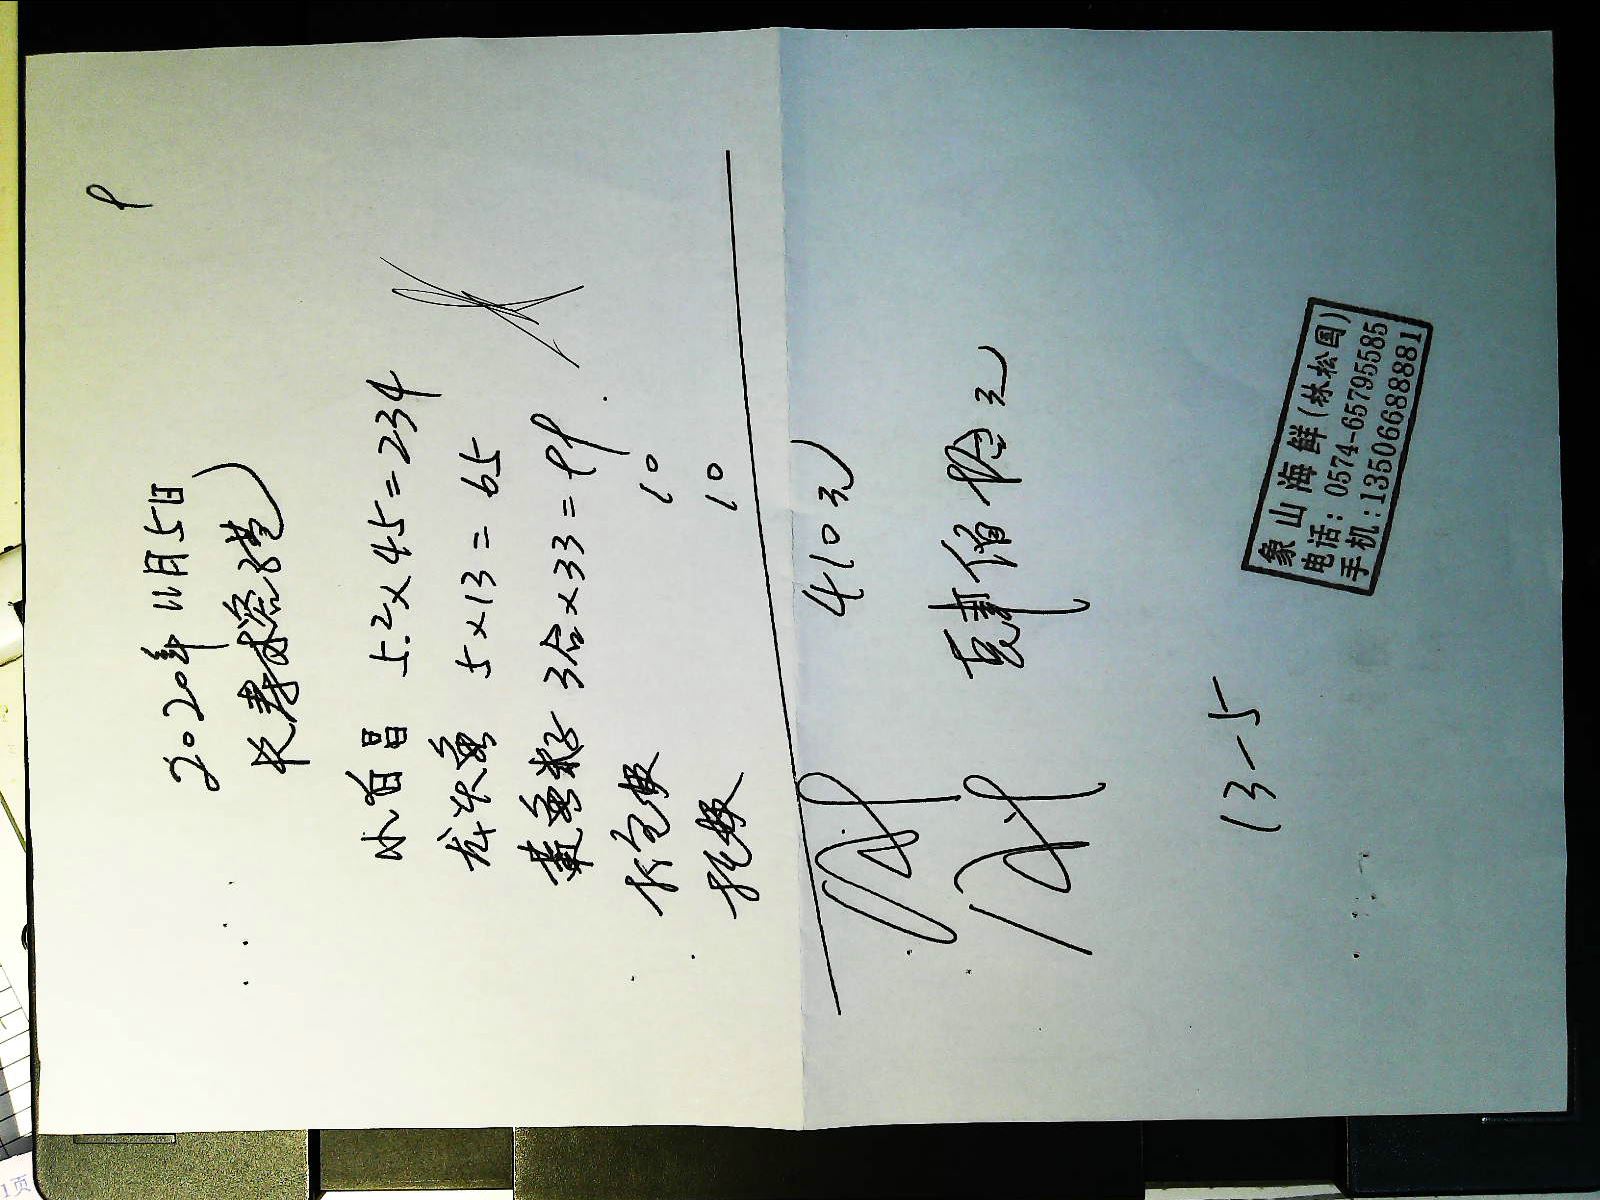 2020年11月5日
小白昌 5.2×45=234
龙头鱼 5×13=65
黄鱼籽 3合×33=99
打包费 10
托费 10
410元
肆佰 拾元
13-5
象山海鲜(林松国)
电话:0574-65795585
手机:13506688881